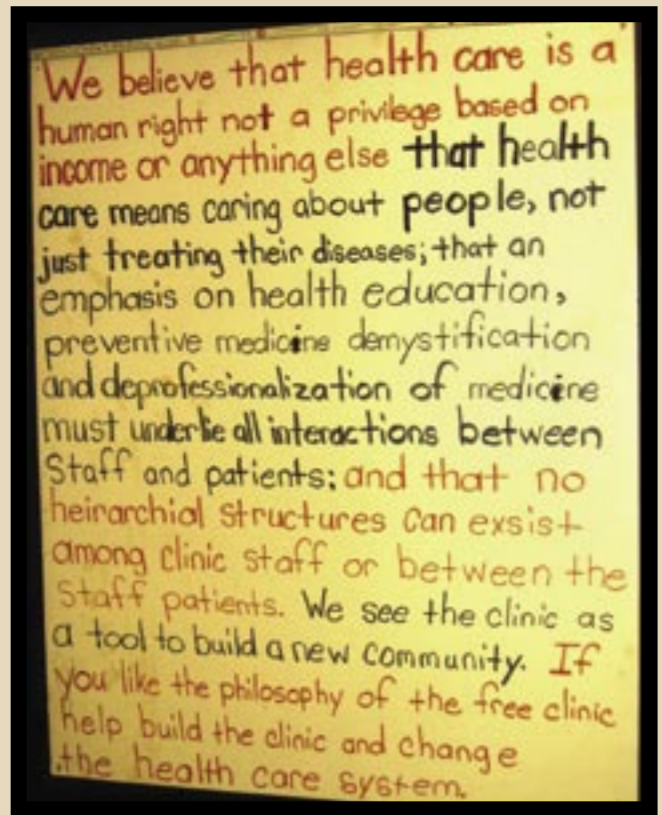 We believe that health care is a
human right not a privilege based on
income or anything else that health
care means caring about people, not
just treating their diseases; that an
emphasis on health education,
preventive medicine demystification
and deprofessionalization of medicine
must underlie all interactions between
Staff and patients; and that no
heirarchial structures can exsist
among clinic staff or between the
Staff patients. We see the clinic as
a tool to build a new community. If
you like the philosophy of the free clinic
help build the clinic and change
the health care system.